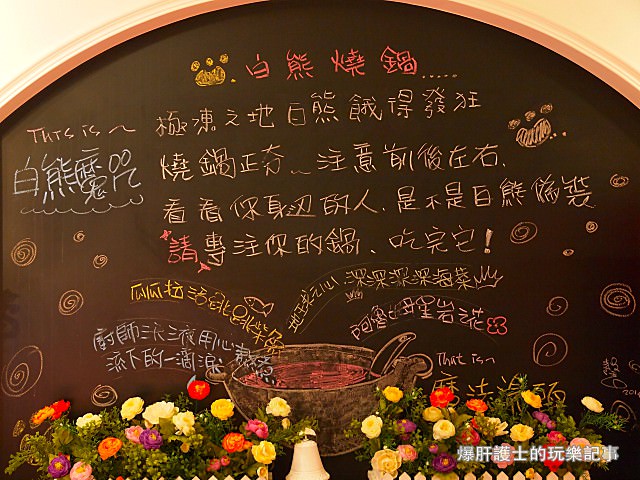 白熊燒鍋.....
This is ~
極凍之地白熊餓得發狂
白熊魔咒
燒鍋正夯~注意前後左右、
看看你身边的人、是不是白熊偽裝
請專注你的鍋、吃完它!
深深深深海菜
瓜瓜拉活跳跳柴魚
阿魯巴星岩漿
廚師泳泳用心熬煮
流下的一滴淚
That is ~
魔法湯頭
爆肝護士的玩樂記事